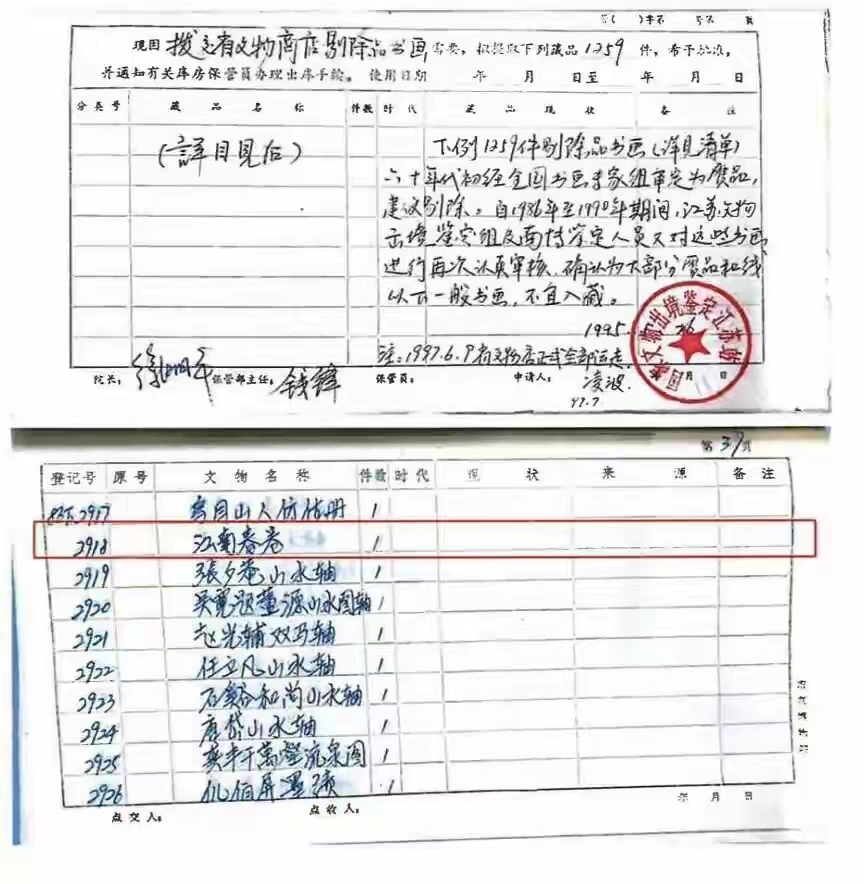 第( )字第 号第 页
现因 拨交省文物商店剔除品书画 需要，拟提取下列藏品1259件，希予批准，
并通知有关库房保管员办理出库手续。使用日期 年 月 日至 年 月 日
分类号 藏品名称 件数 时代 藏品现状 备注
(詳目見后)
下列1259件剔除品书画(详见清单)
六十年代初经全国书画专家组审定为赝品，
建议剔除。自1986年至1990年期间，江苏文物
出境鉴定组及南博鉴定人员又对这些书画
进行再次认真审核，确认为大部分赝品和线
以下一般书画，不宜入藏。
1995 26
文物出境鉴定江苏站
注：1997.6.9省文物店正式全部运走
院长： 徐湖平 保管部主任： 钱锋 保管员： 申请人： 凌波 月 日
97.7.
第37页
登记号 原号 文物名称 件数 时代 现状 来源 备注
2917 山人仿佑册 1
2918 江南春卷 1
2919 張夕菴山水轴 1
2920 吴寬題董源山水图轴 1
2921 赵光辅双马轴 1
2922 任立凡山水轴 1
2923 石谿和尚山水轴 1
2924 唐岱山水轴 1
2925 奚丰千萬壑流泉图 1
2926 仇伯屏墨蹟 1
点交人： 点收人： 年 月 日